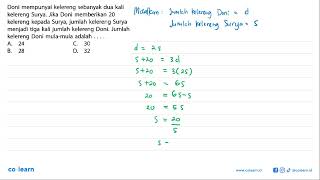 Doni mempunyai kelereng sebanyak dua kali
kelereng Surya. Jika Doni memberikan 20
kelereng kepada Surya, jumlah kelereng Surya
menjadi tiga kali jumlah kelereng Doni. Jumlah
kelereng Doni mula-mula adalah ....
A. 24 C. 30
B. 28 D. 32
Misalkan: Jumlah kelereng Doni = d
Jumlah kelereng Surya = s
d = 2s
s+20 = 3d
s+20 = 3(2s)
s+20 = 6s
20 = 6s-s
20 = 5s
s = 20/5
s =
co·learn
www.colearn.id
@colearn.id